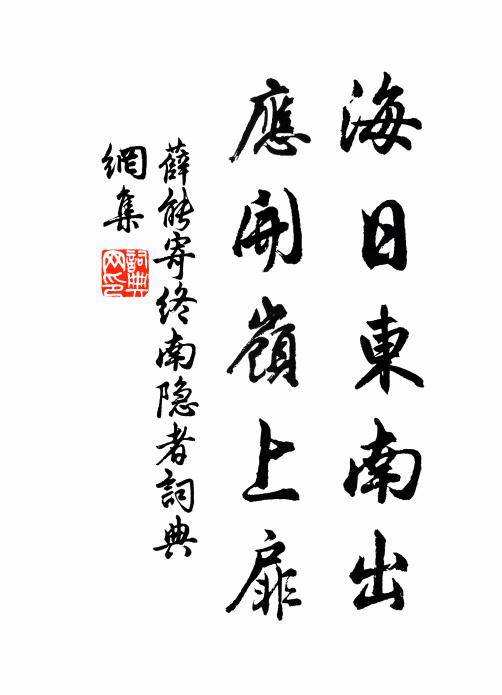 海日東南出
應開嶺上扉
薛能寄終南隐者詞典
網集
詞典
网印